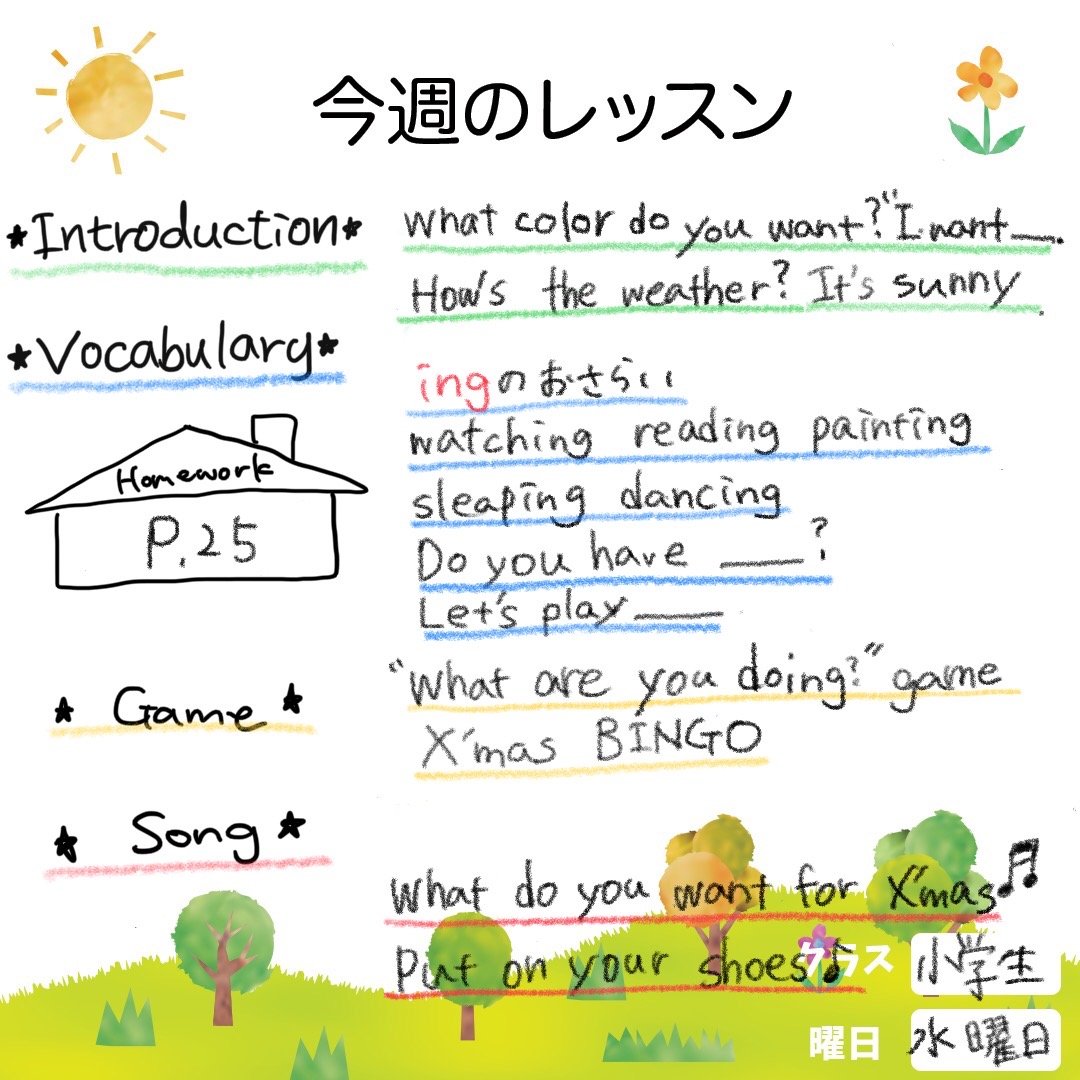 今週のレッスン
★Introduction★
What color do you want?" I want __.
How's the weather? It's sunny.
★Vocabulary★
ingのおさらい
watching reading painting
sleaping dancing
Do you have ____?
Let's play ____
Homework
P.25
★ Game ★
"What are you doing?" game
X'mas BINGO
★ Song ★
What do you want for X'mas♫
Put on your shoes♪
クラス 小学生
曜日 水曜日